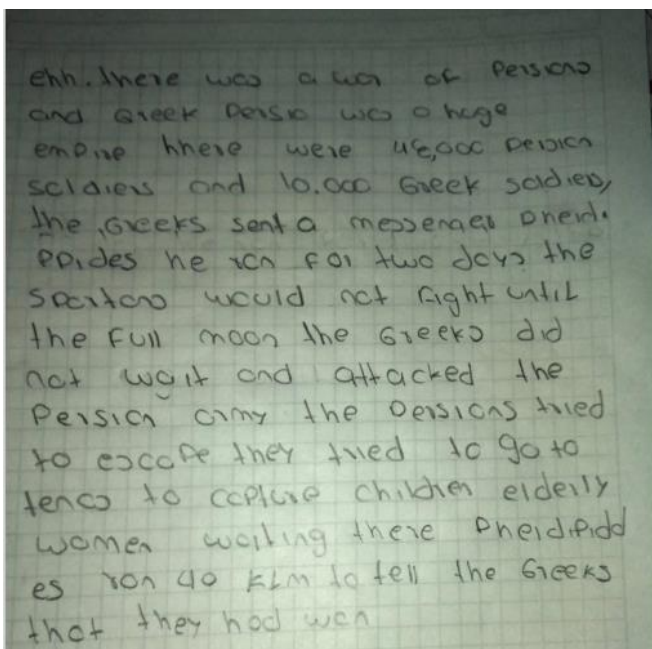 ehh. there was a war of Persians
and Greek Persia was a huge
empire hhere were 48,000 Persian
soldiers and 10.000 Greek soldiers,
the Greeks sent a messenger Pheid.
ppides he ran for two days the
Spartans would not fight until
the full moon the Greeks did
not wait and attacked the
Persian army the Persians tried
to escape they tried to go to
to capture children elderly
women waiting there Pheidipidd
es ran 40 klm to tell the Greeks
that they had won